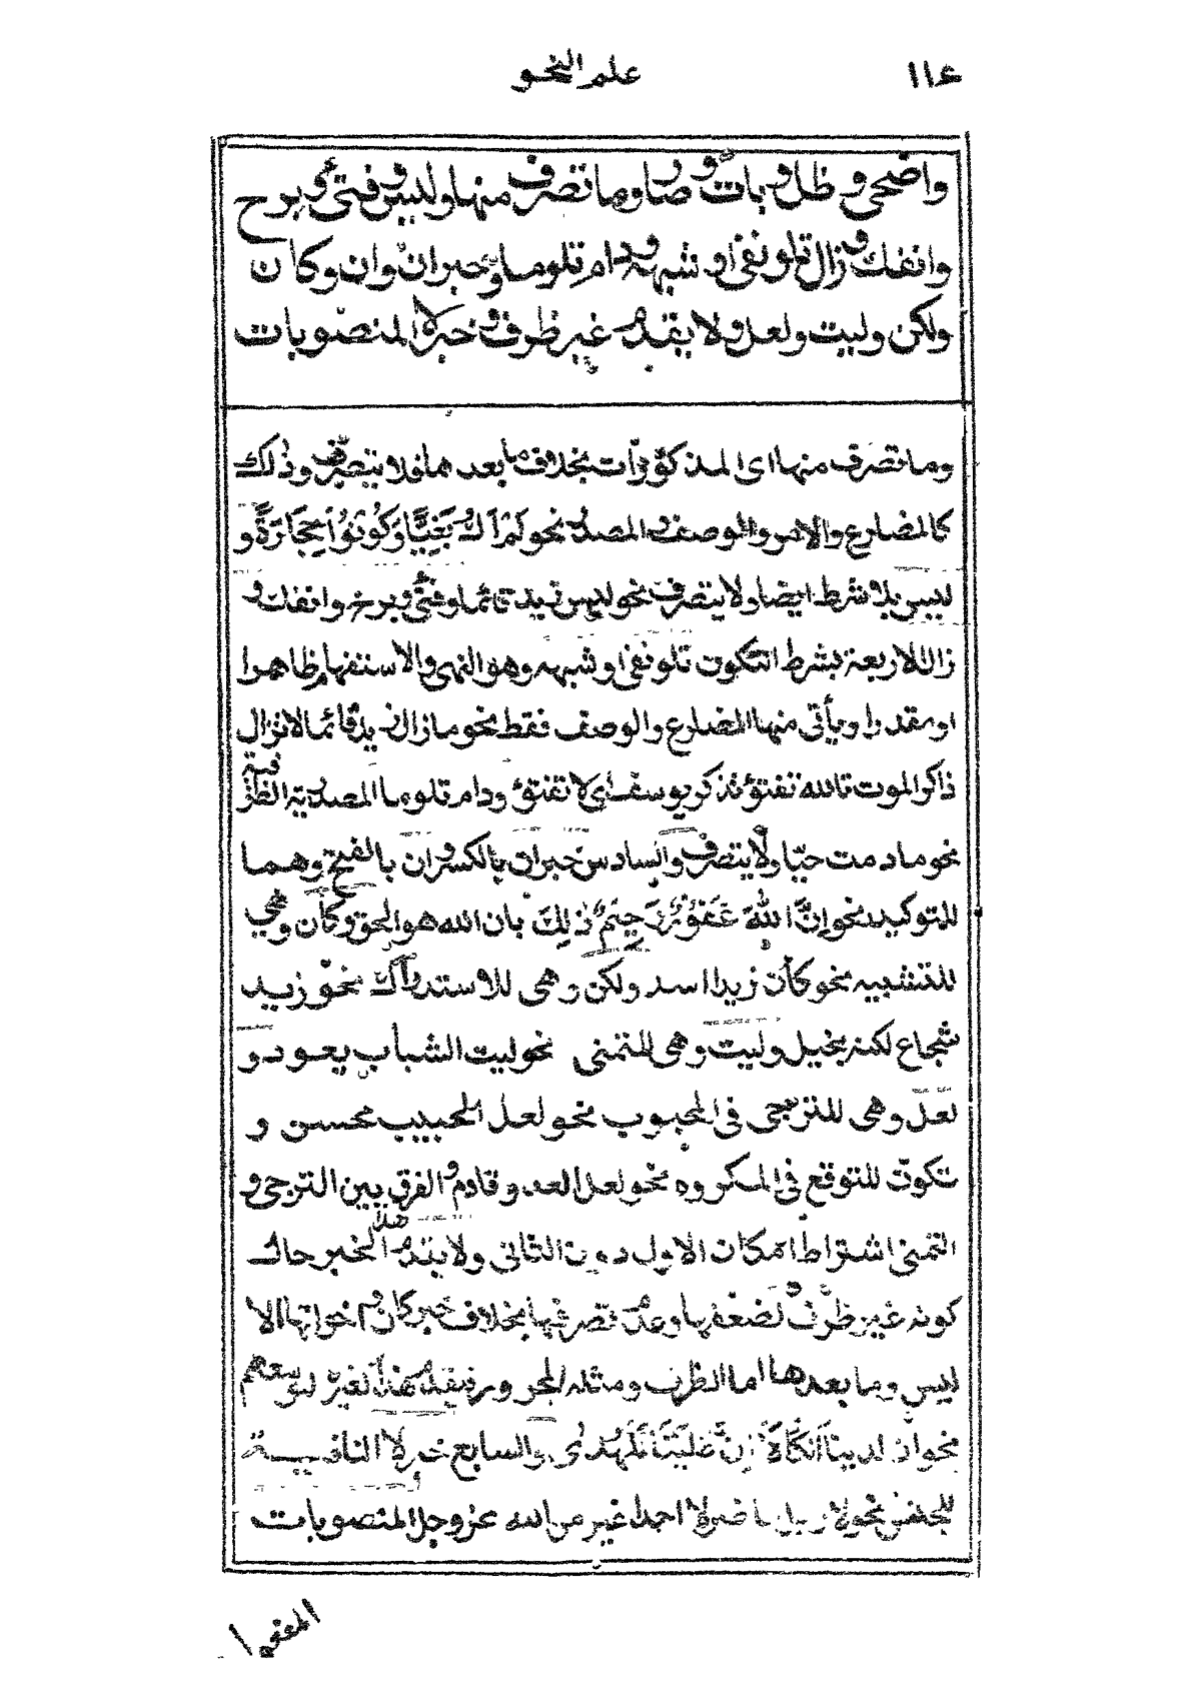 ١١٤
علم النحو
واضحى وظل وبات وصار وما تصرف منها وليس وفتئ وبرح
وانفك وزال تلو نفي او شبهه ودام تلو ما وخبر ان وان وكان
ولكن وليت ولعل ولا يقدم غير ظرف وخبر لا المنصوبات
وما تصرف منها اى المذكورات بخلاف ما بعدها فلا يتصرف وذلك
كالمضارع والامر والوصف والمصدر نحو لَمْ اَكُ بَغِيًّا وَكُونُوا حِجَارَةً و
ليس بلا شرط ايضا ولا يتصرف نحو ليس زيد قائما وفتئ وبرح وانفك و
زال الاربعة بشرط ان تكون تلو نفي او شبهه وهو النهى والاستفهام ظاهرا
او مقدرا ويأتى منها المضارع والوصف فقط نحو ما زال زيد قائما لا تزال
ذاكر الموت تالله تفتؤ تذكر يوسف اى لا تفتؤ ودام تلو ما المصدرية الظرفية
نحو ما دمت حيّا ولا يتصرف والسادس خبر ان بالكسر وان بالفتح وهما
للتوكيد نحو اِنَّ اللهَ غَفُوْرٌ رَحِيْمٌ ذٰلِكَ بان الله هو الحق وكأن وهي
للتشبيه نحو كأن زيدا اسد ولكن وهى للاستدراك نحو زيد
شجاع لكنه بخيل وليت وهى للتمنى نحو ليت الشباب يعود و
لعلّ وهى للترجى فى المحبوب نحو لعل الحبيب محسن و
تكون للتوقع فى المكروه نحو لعل العدو قادم والفرق بين الترجى و
التمنى اشتراط امكان الاول دون الثانى ولا يتقدم هذا الخبر حال
كونه غير ظرف لضعفها وعدم تصرفها بخلاف خبر كان واخواتها الا
ليس وما بعدها اما الظرف ومثله المجرور فيقدم هنا لغير لتوسعهم
نحو ان لدينا اَنْكَالًا اِنَّ عَلَيْنَا لَلْهُدٰى والسابع خبر لا النافية
للجنس نحو لا رجل حاضر لا احد اغير من الله عز وجل المنصوبات
المفعول